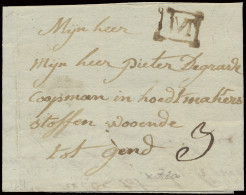 M
Mijn heer
mijn heer pieter Degrade
coopman in hoedtmakers
stoffen woonde
tot gend 3